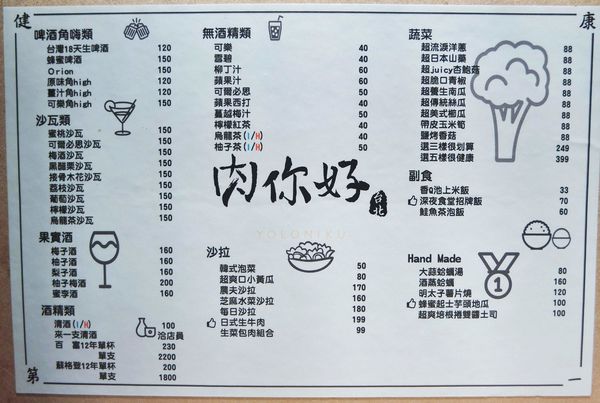 健
康
啤酒角嗨類
台灣18天生啤酒 120
蜂蜜啤酒 150
Orion 150
原味角high 120
薑汁角high 120
可樂角high 150
沙瓦類
蜜桃沙瓦 150
可爾必思沙瓦 150
梅酒沙瓦 150
黑醋栗沙瓦 150
接骨木花沙瓦 150
荔枝沙瓦 150
葡萄沙瓦 150
檸檬沙瓦 150
烏龍茶沙瓦 150
果實酒
梅子酒 160
柚子酒 160
梨子酒 160
柚子梅酒 200
蜜李酒 160
酒精類
清酒(I/H) 100
來一支清酒 洽店員
百富12年單杯 230
單支 2200
蘇格登12年單杯 200
單支 1800
無酒精類
可樂 40
雪碧 40
柳丁汁 60
蘋果汁 60
可爾必思 50
蘋果西打 40
蔓越梅汁 50
檸檬紅茶 40
烏龍茶(I/H) 40
柚子茶(I/H) 50
肉你好
台北
YOLONIKU
沙拉
韓式泡菜 50
超爽口小黃瓜 80
農夫沙拉 170
芝麻水菜沙拉 160
每日沙拉 180
日式生牛肉 199
生菜包肉組合 99
蔬菜
超流淚洋蔥 88
超日本山藥 88
超juicy杏鮑菇 88
超脆口青椒 88
超養生南瓜 88
超傳統絲瓜 88
超美式櫛瓜 88
帶皮玉米筍 88
鹽烤香菇 88
選三樣很划算 249
選五樣很健康 399
副食
香Q池上米飯 33
深夜食堂招牌飯 70
鮭魚茶泡飯 60
Hand Made
大蒜蛤蠣湯 80
酒蒸蛤蠣 160
明太子薯片燒 120
蜂蜜起士芋頭地瓜 100
超爽培根捲雙醬土司 100
1
第
一